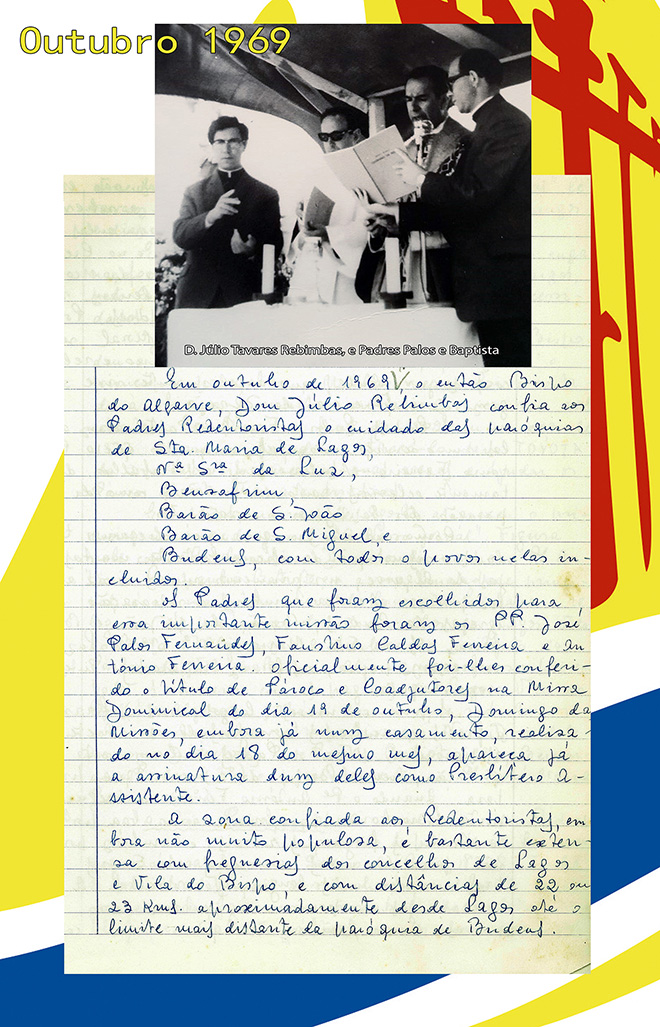 Outubro 1969
D. Júlio Tavares Rebimbas, e Padres Palos e Baptista
Em outubro de 1969, o então Bispo
do Algarve, Dom Júlio Rebimbas confia aos
Padres Redentoristas o cuidado das paróquias
de Sta. Maria de Lagos,
Nª Srª da Luz,
Bensafrim,
Barão de S. João
Barão de S. Miguel, e
Budens, com todos o povos nelas in-
cluidos.
Os Padres que foram escolhidos para
essa importante missão foram os PP. José
Palos Fernandes, Faustino Caldas Ferreira e An
tónio Ferreira. Oficialmente foi-lhes conferi-
do o título de Pároco e Coadjutores na Missa
Dominical do dia 19 de outubro, Domingo das
Missões, embora já num casamento, realiza-
do no dia 18 do mesmo mes, apareça já
a assinatura dum deles como Presbítero A-
ssistente.
A zona confiada aos Redentoristas, em
bora não muito populosa, é bastante exten-
sa com freguesias dos concelhos de Lagos
e Vila do Bispo, e com distâncias de 22 ou
23 Kms. aproximadamente desde Lagos até o
limite mais distante da paróquia de Budens.